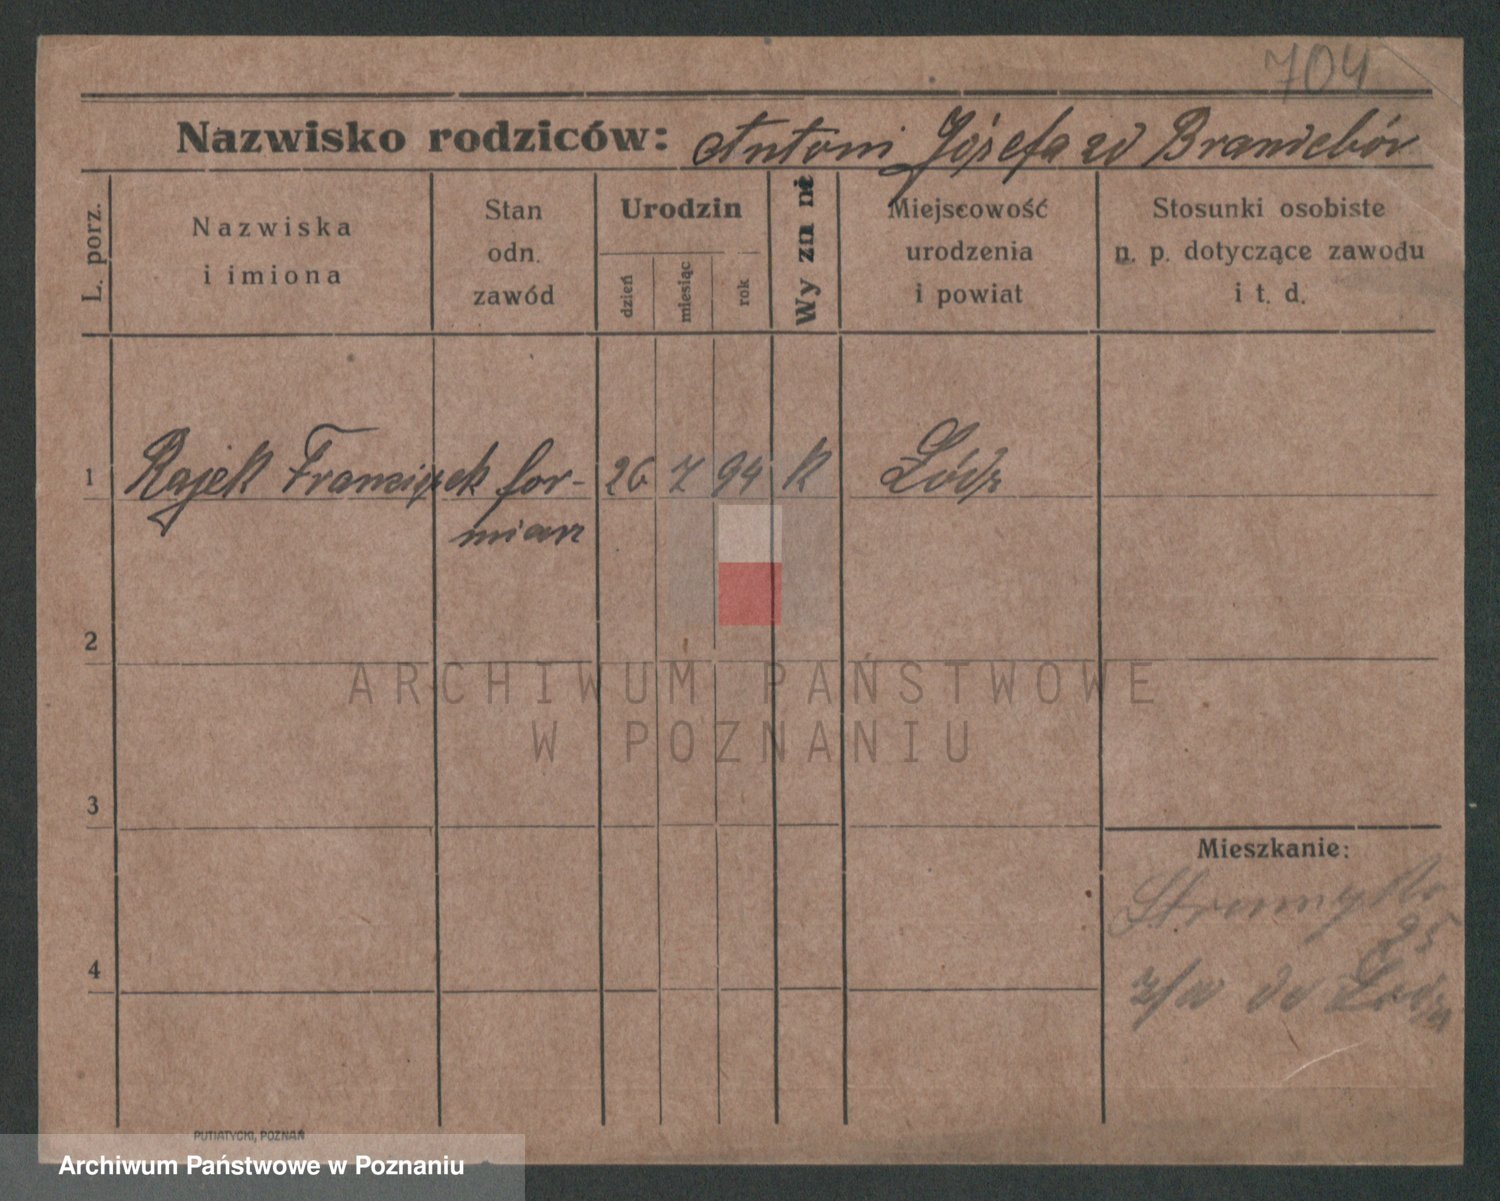 704
Nazwisko rodziców: Antoni Józefa zd Brandebór
L. porz.
Nazwiska
i imiona
Stan
odn.
zawód
Urodzin
dzień
miesiąc
rok
Wyznanie
Miejscowość
urodzenia
i powiat
Stosunki osobiste
n. p. dotyczące zawodu
i t. d.
1 Rajek Franciszek for-
miarz
26 7 94 K Łódź
2
3
4
Mieszkanie:
25
do Łodzi
ARCHIWUM PAŃSTWOWE
W POZNANIU
PUTIATYCKI, POZNAŃ
Archiwum Państwowe w Poznaniu